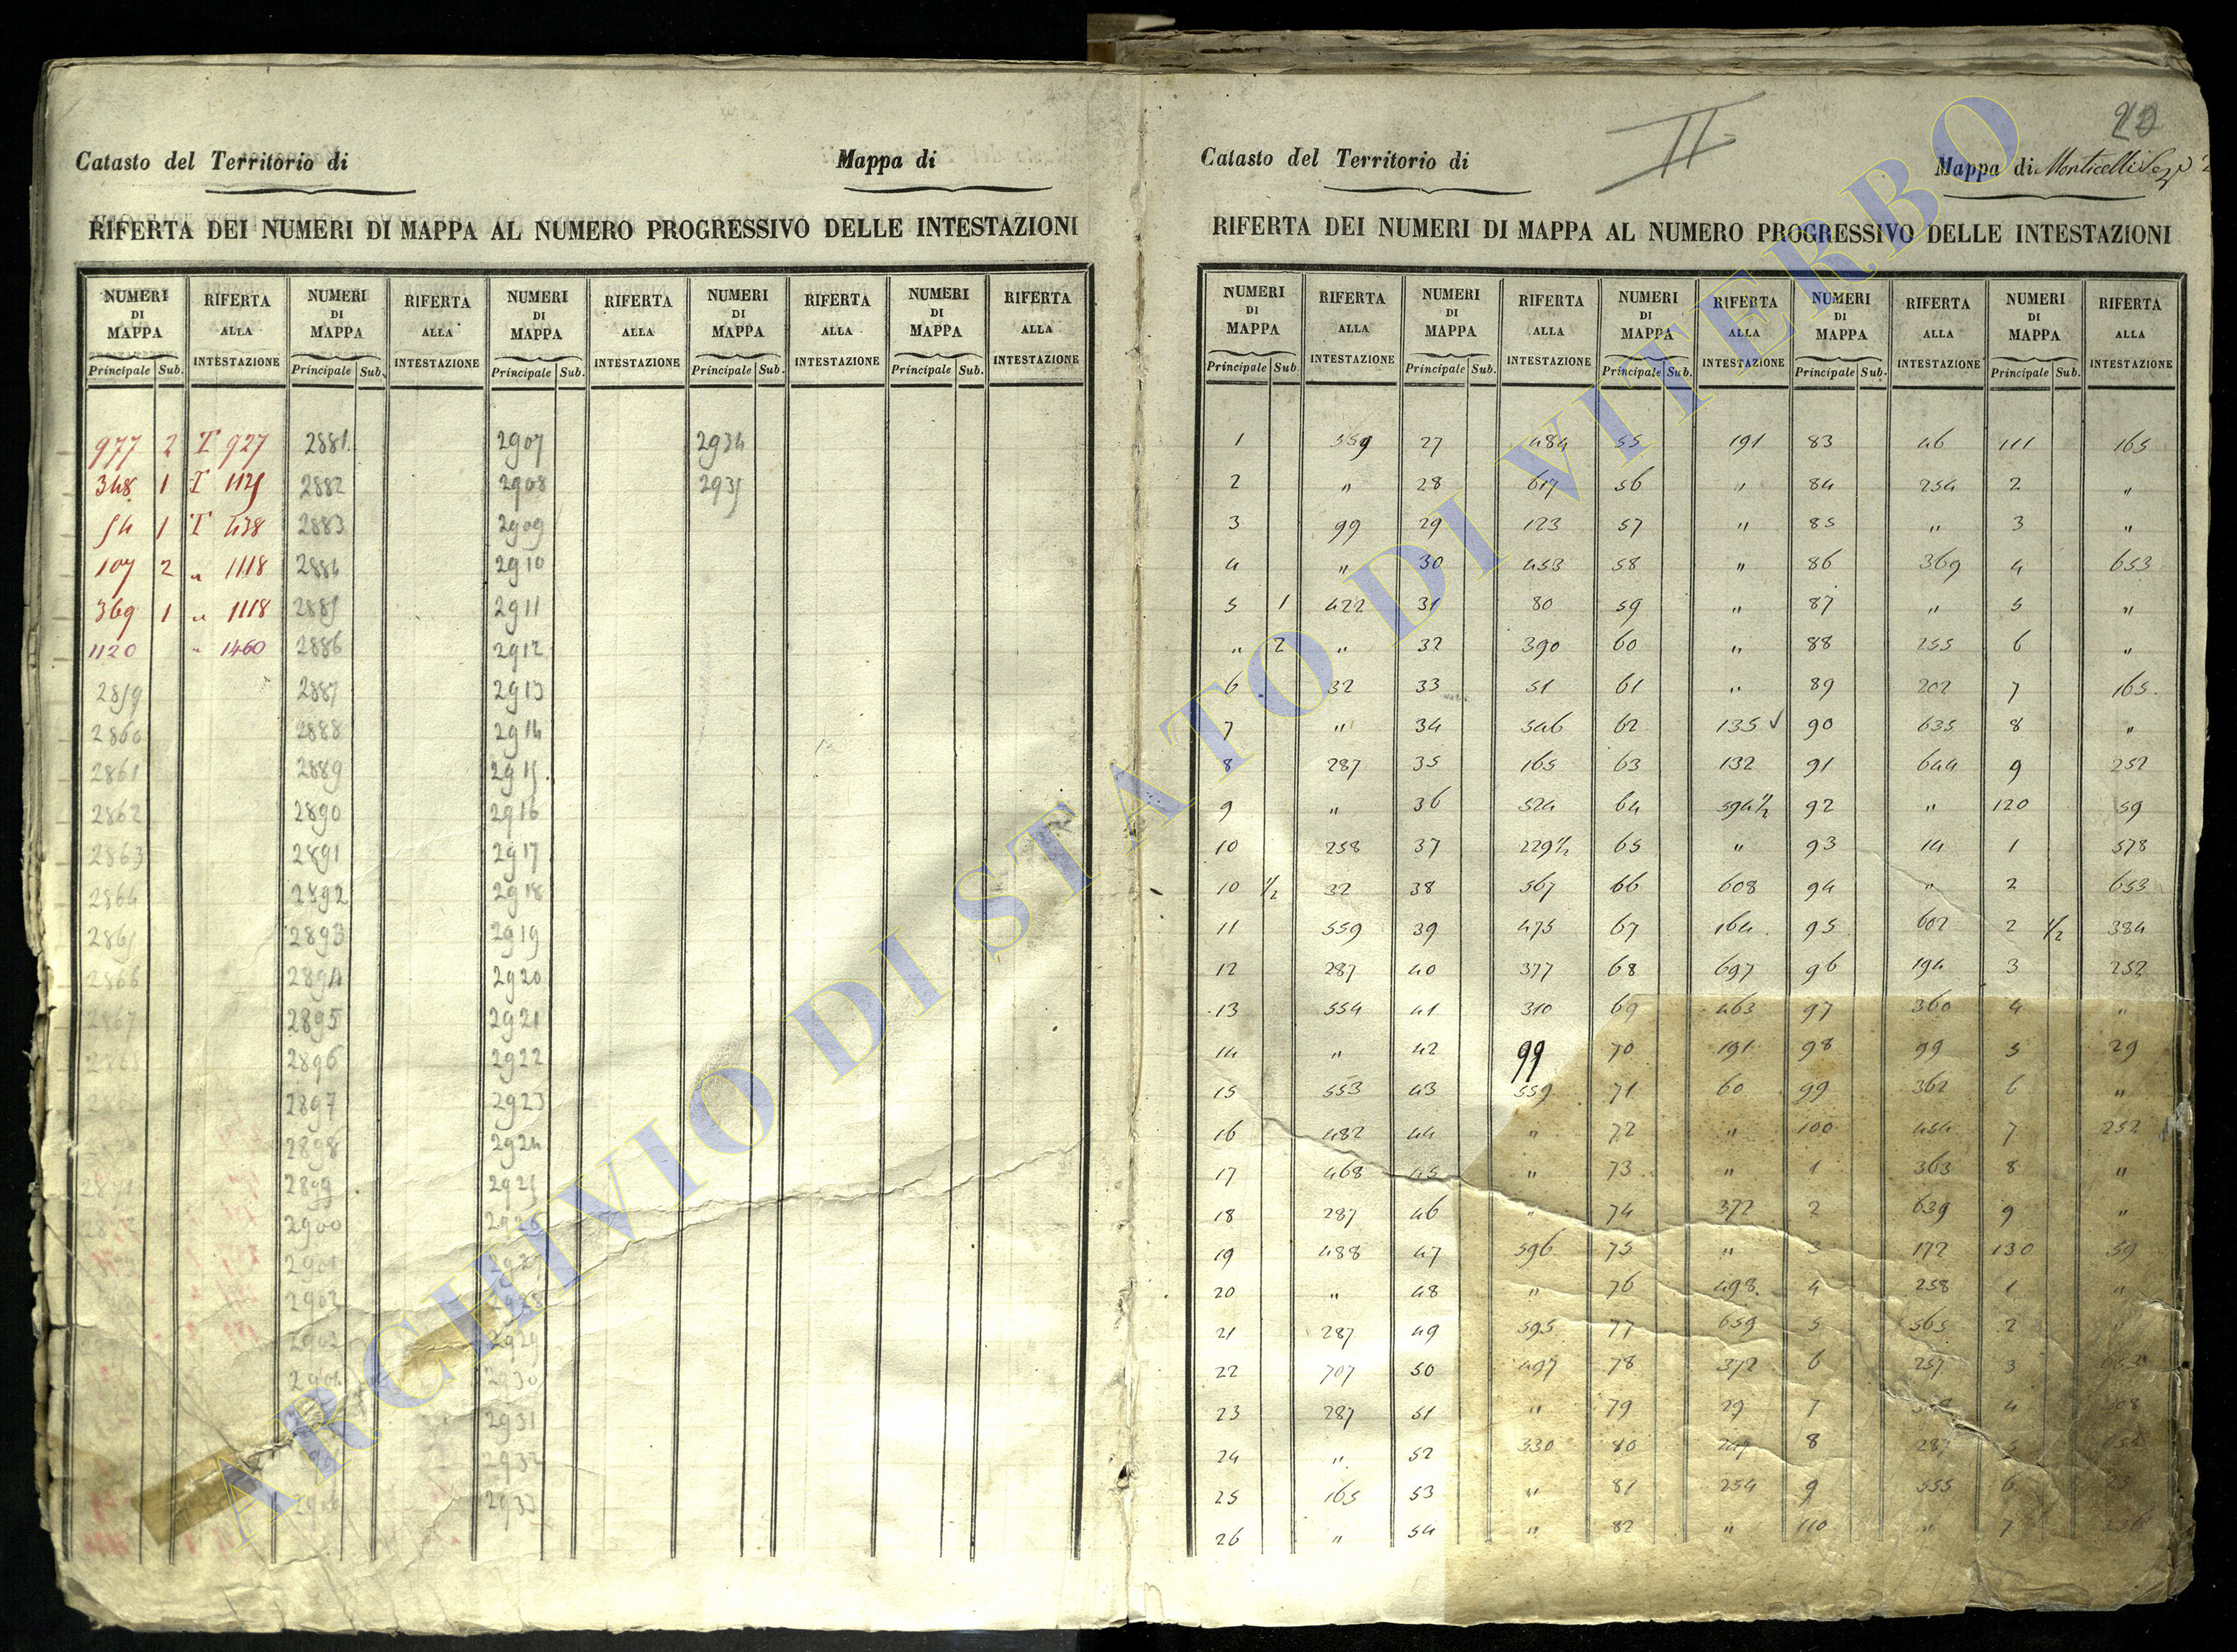 Catasto del Territorio di Mappa di
RIFERTA DEI NUMERI DI MAPPA AL NUMERO PROGRESSIVO DELLE INTESTAZIONI
NUMERI DI MAPPA RIFERTA ALLA INTESTAZIONE NUMERI DI MAPPA RIFERTA ALLA INTESTAZIONE NUMERI DI MAPPA RIFERTA ALLA INTESTAZIONE NUMERI DI MAPPA RIFERTA ALLA INTESTAZIONE NUMERI DI MAPPA RIFERTA ALLA INTESTAZIONE
Principale Sub. Principale Sub. Principale Sub. Principale Sub. Principale Sub.
977 2 I 927 2881 2907 2934
348 1 I 1125 2882 2908 2935
54 1 I 438 2883 2909
107 2 " 1118 2884 2910
369 1 " 1118 2885 2911
1120 " 1460 2886 2912
2859 2887 2913
2860 2888 2914
2861 2889 2915
2862 2890 2916
2863 2891 2917
2864 2892 2918
2865 2893 2919
2866 2894 2920
2867 2895 2921
2868 2896 2922
2897 2923
2898 2924
2871 2899 2925
2900 2926
2901 2927
2902 2928
2903 2929
2904 2930
2931
2932
2933
II
20
Catasto del Territorio di Mappa di Monticelli
RIFERTA DEI NUMERI DI MAPPA AL NUMERO PROGRESSIVO DELLE INTESTAZIONI
NUMERI DI MAPPA RIFERTA ALLA INTESTAZIONE NUMERI DI MAPPA RIFERTA ALLA INTESTAZIONE NUMERI DI MAPPA RIFERTA ALLA INTESTAZIONE NUMERI DI MAPPA RIFERTA ALLA INTESTAZIONE NUMERI DI MAPPA RIFERTA ALLA INTESTAZIONE
Principale Sub. Principale Sub. Principale Sub. Principale Sub. Principale Sub.
1 559 27 484 55 191 83 46 111 165
2 " 28 617 56 " 84 254 2 "
3 99 29 123 57 " 85 " 3 "
4 " 30 453 58 " 86 369 4 653
5 1 422 31 80 59 " 87 " 5 "
" 2 " 32 390 60 " 88 255 6 "
6 32 33 51 61 " 89 202 7 165
7 " 34 546 62 135 90 635 8 "
8 287 35 165 63 132 91 644 9 252
9 " 36 524 64 594 1/2 92 " 120 59
10 258 37 229 1/2 65 " 93 14 1 578
10 1/2 32 38 567 66 608 94 " 2 653
11 559 39 475 67 164 95 602 2 1/2 384
12 287 40 377 68 697 96 194 3 252
13 554 41 310 69 463 97 360 4 "
14 " 42 99 70 191 98 99 5 29
15 553 43 559 71 60 99 362 6 "
16 482 44 " 72 " 100 454 7 252
17 468 45 " 73 " 1 363 8 "
18 287 46 " 74 372 2 639 9 "
19 488 47 596 75 " 3 172 130 59
20 " 48 " 76 498 4 258 1 "
21 287 49 595 77 659 5 565 2 "
22 707 50 497 78 372 6 257 3
23 287 51 " 79 29 7 4
24 " 52 330 80 8 287
25 165 53 " 81 254 9 555 6
26 " 54 " 82 " 110 " 7
ARCHIVIO DI STATO DI VITERBO